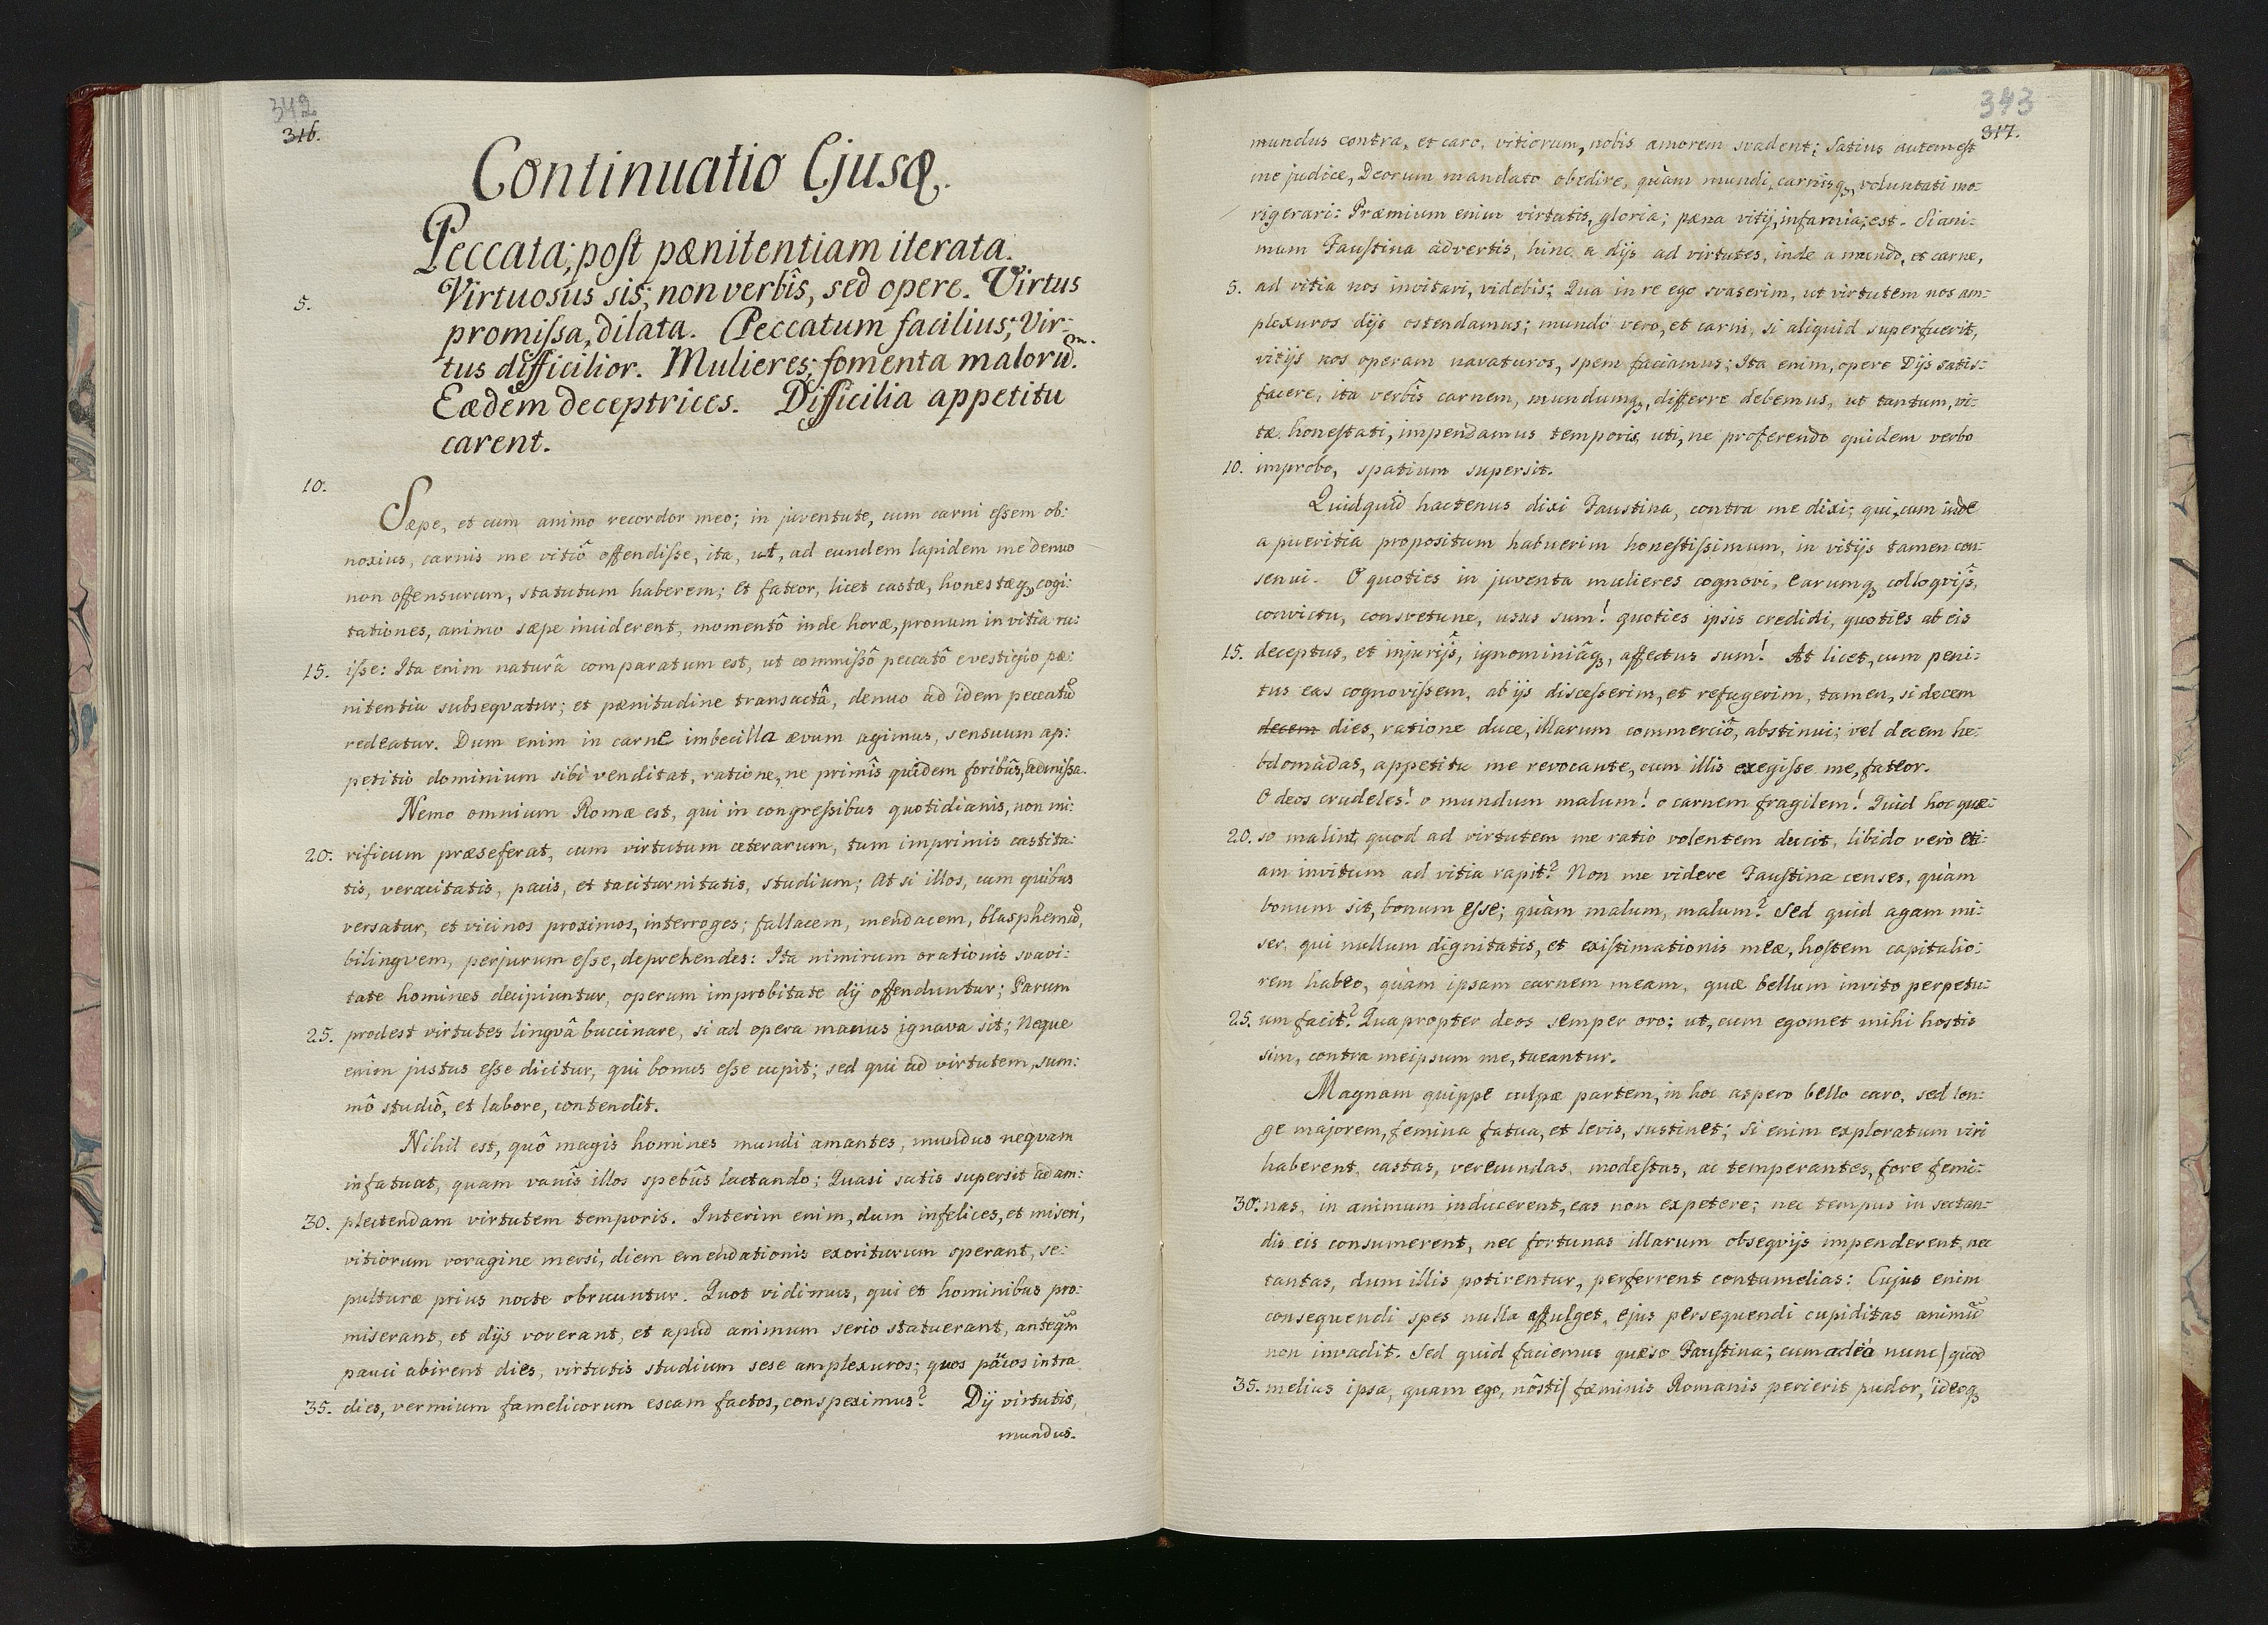 342
316.
Continuatio Ejusq3.
Peccata; post pænitentiam iterata.
5. Virtuosus sis; non verbîs, sed opere. Virtus
promissa, dilata. Peccatum facilius; Vir:
tus difficilior. Mulieres; fomenta malorum.
Eædem deceptrices. Difficilia appetitu
carent.
10.
Sæpe, et cum animo recordor meo; in juventute, cum carni essem ob:
noxius, carnis me vitiô offendisse, ita, ut, ad eundem lapidem me denuo
non offensurum, statutum haberem; et fateor, licet castæ, honestæq3, cogi:
tationes, animo sæpe inciderent, momentô inde horæ, pronum in vitia ru:
15. isse: Ita enim naturâ comparatum est, ut commissô peccatô evestigio pæ:
nitentia subseqvatur; et pænitudine transactâ, denuo ad idem peccatū
redeatur. Dum enim in carne imbecilla ævum agimus, sensuum ap:
petitio dominium sibi venditat, ratione, ne primîs quidem foribûs, admissa.
Nemo omnium Romæ est, qui in congressibus quotidianis, non mi:
20. rificum præseferat, cum virtutum cæterarum, tum imprimis castita:
tis, veracitatis, pacis, et taciturnitatis, studium; At si illos, cum quibus
versatur, et vicinos proximos, interroges; fallacem, mendacem, blasphemū,
bilingvem, perjurum esse, deprehendes: Ita nimirum orationis svavi:
tate homines decipiuntur, operum improbitate dij offenduntur; Parum
25. prodest virtutes lingvâ buccinare, si ad opera manus ignava sit; Neque
enim justus esse dicitur, qui bonus esse cupit; sed qui ad virtutem, sum:
mô studiô, et labore, contendit.
Nihil est, quô magis homines mundi amantes, mundus neqvam
infatuat, quam vanîs illos spebûs lactando; Quasi satis supersit ad am:
30. plectendam virtutem temporis. Interim enim, dum infelices, et miseri,
vitiorum voragine mersi, diem emendationis exoriturum sperant, se:
pulturæ prius nocte obruuntur. Quot vidimus, qui et hominibus pro:
miserant, et dijs voverant, et apud animum serio statuerant, anteqm
pauci abirent dies, virtutis studium sese amplexuros; quos paucos intra
35. dies, vermium famelicorum escam factos, conspeximus? Dij virtutis,
mundus.
343
317.
mundus contra, et caro, vitiorum, nobis amorem svadent; Satius autem est
me judice, Deorum mandato obedire, quàm mundi, carnisq3, voluntati mo:
rigerari: Præmium enim virtutis, gloria; pæna vitij, infamia; est. Si ani:
mum Faustina advertis, hinc a dijs ad virtutes, inde a mundo, et carne,
5. ad vitia nos invitari, videbis; Qua in re ego svaserim, ut virtutem nos am:
plexuros dijs ostendamus; mundo vero, et carni, si aliquid superfuerit,
vitijs nos operam navaturos, spem faciamus; Ita enim, opere Dijs satis:
facere, ita verbîs carnem, mundumq3, differre debemus, ut tantum, vi:
tæ honestati, impendamus temporis, uti, ne proferendo quidem verbo
10. improbo, spatium supersit.
Quidquid hactenus dixi Faustina, contra me dixi; qui, cum inde
a pueritia propositum habuerim honestissimum, in vitijs tamen con:
senui. O quoties in juventa mulieres cognovi, earumq3 colloqvijs,
convictu, consvetune, usus sum! quoties ipsis credidi, quoties ab eis
15. deceptus, et injurijs, ignominiâq3, affectus sum! At licet, cum peni:
tus eas cognovissem, ab ijs discesserim, et refugerim, tamen, si decem
decem dies, ratione duce, illarum commerciô, abstinui; vel decem he:
bdomadas, appetitu me revocante, cum illis exegisse me, fateor.
O deos crudeles! o mundum malum! o carnem fragilem! Quid hoc quæ:
20. so malint, quod ad virtutem me ratio volentem ducit, libido verò eti:
am invitum ad vitia rapit? Non me videre Faustina censes, quàm
bonum sit, bonum esse; quàm malum, malum? Sed quid agam mi:
ser, qui nullum dignitatis, et existimationis meæ, hostem capitalio:
rem habeo, quàm ipsam carnem meam, quæ bellum invito perpetu:
25. um facit? Quapropter deos semper oro; ut, cum egomet mihi hostis
sim, contra meipsum me, tueantur.
Magnam quippe culpæ partem, in hoc aspero bello caro, sed lon:
ge majorem, femina fatua, et levis, sustinet; Si enim exploratum viri
haberent, castas, verecundas, modestas, ac temperantes, fore femi:
30. nas, in animum inducerent, eas non expetere; nec tempus in sectan:
dis eis consumerent, nec fortunas illarum obseqvijs impenderent, nec
tantas, dum illis potirentur, perferrent contumelias: Cujus enim
consequendi spes nulla affulget, ejus persequendi cupiditas animū
non invadit. Sed quid faciemus quæso Faustina; cum adeò nunc /quod
35. melius ipsa, quam ego, nôsti/ fæminis Romanis perierit pudor, ideoq3